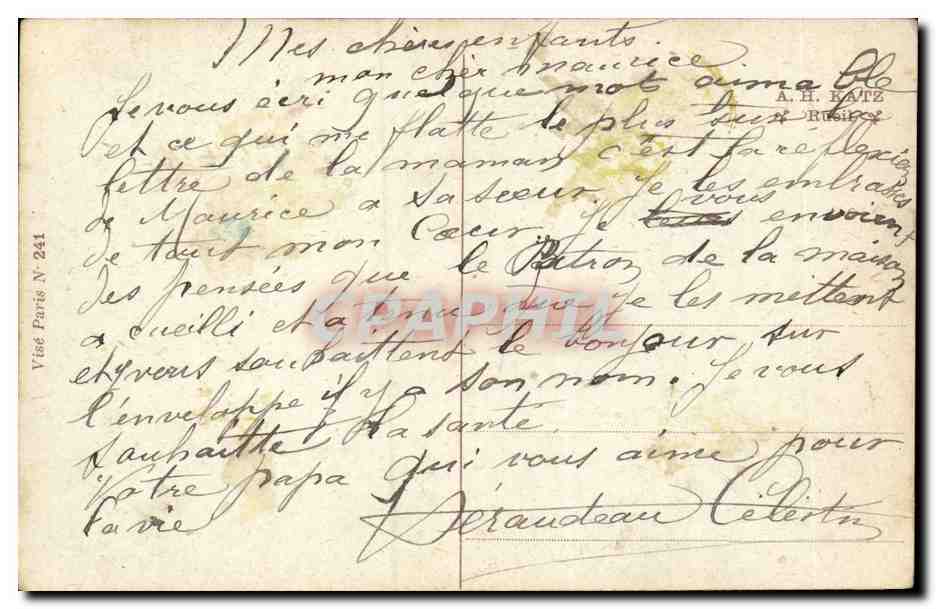 Mes chers enfants.
mon cher maurice
Je vous écri quelque mot aimable
et ce qui me flatte le plus sur la
lettre de la maman c'est la reflexion
de Maurice a sa sœur. Je les embrasses
de tout mon Cœur. Je vous envoient
des pensées que le Patron de la maison
a cueilli et a tenu que je les mettent
et y vous souhaittent le bonjour sur
l'enveloppe il y a son nom. Je vous
souhaitte la santé.
Votre papa qui vous aime pour
la vie Séraudeau Célestin
A. H. KATZ
Rueil
Visé Paris N° 241
CPAPHIL